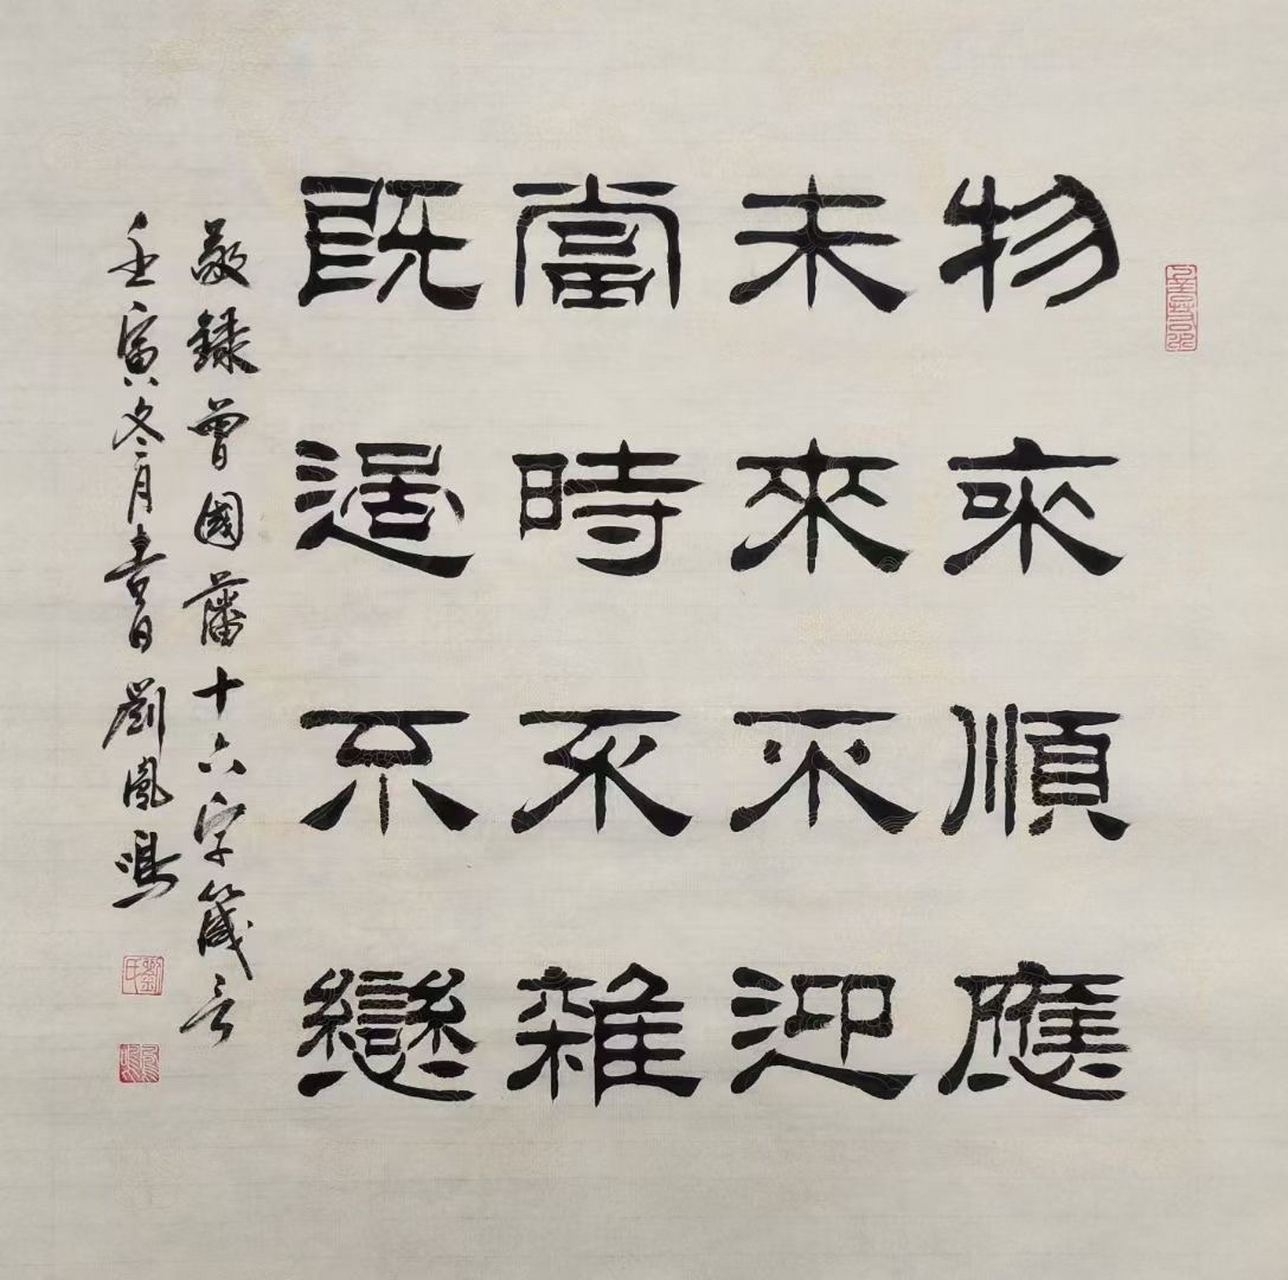 物來順應
未來不迎
當時不雜
既過不戀
敬錄曾國藩十六字箴言
壬寅冬月書日劉鳳鳴
劉氏
鳳鳴